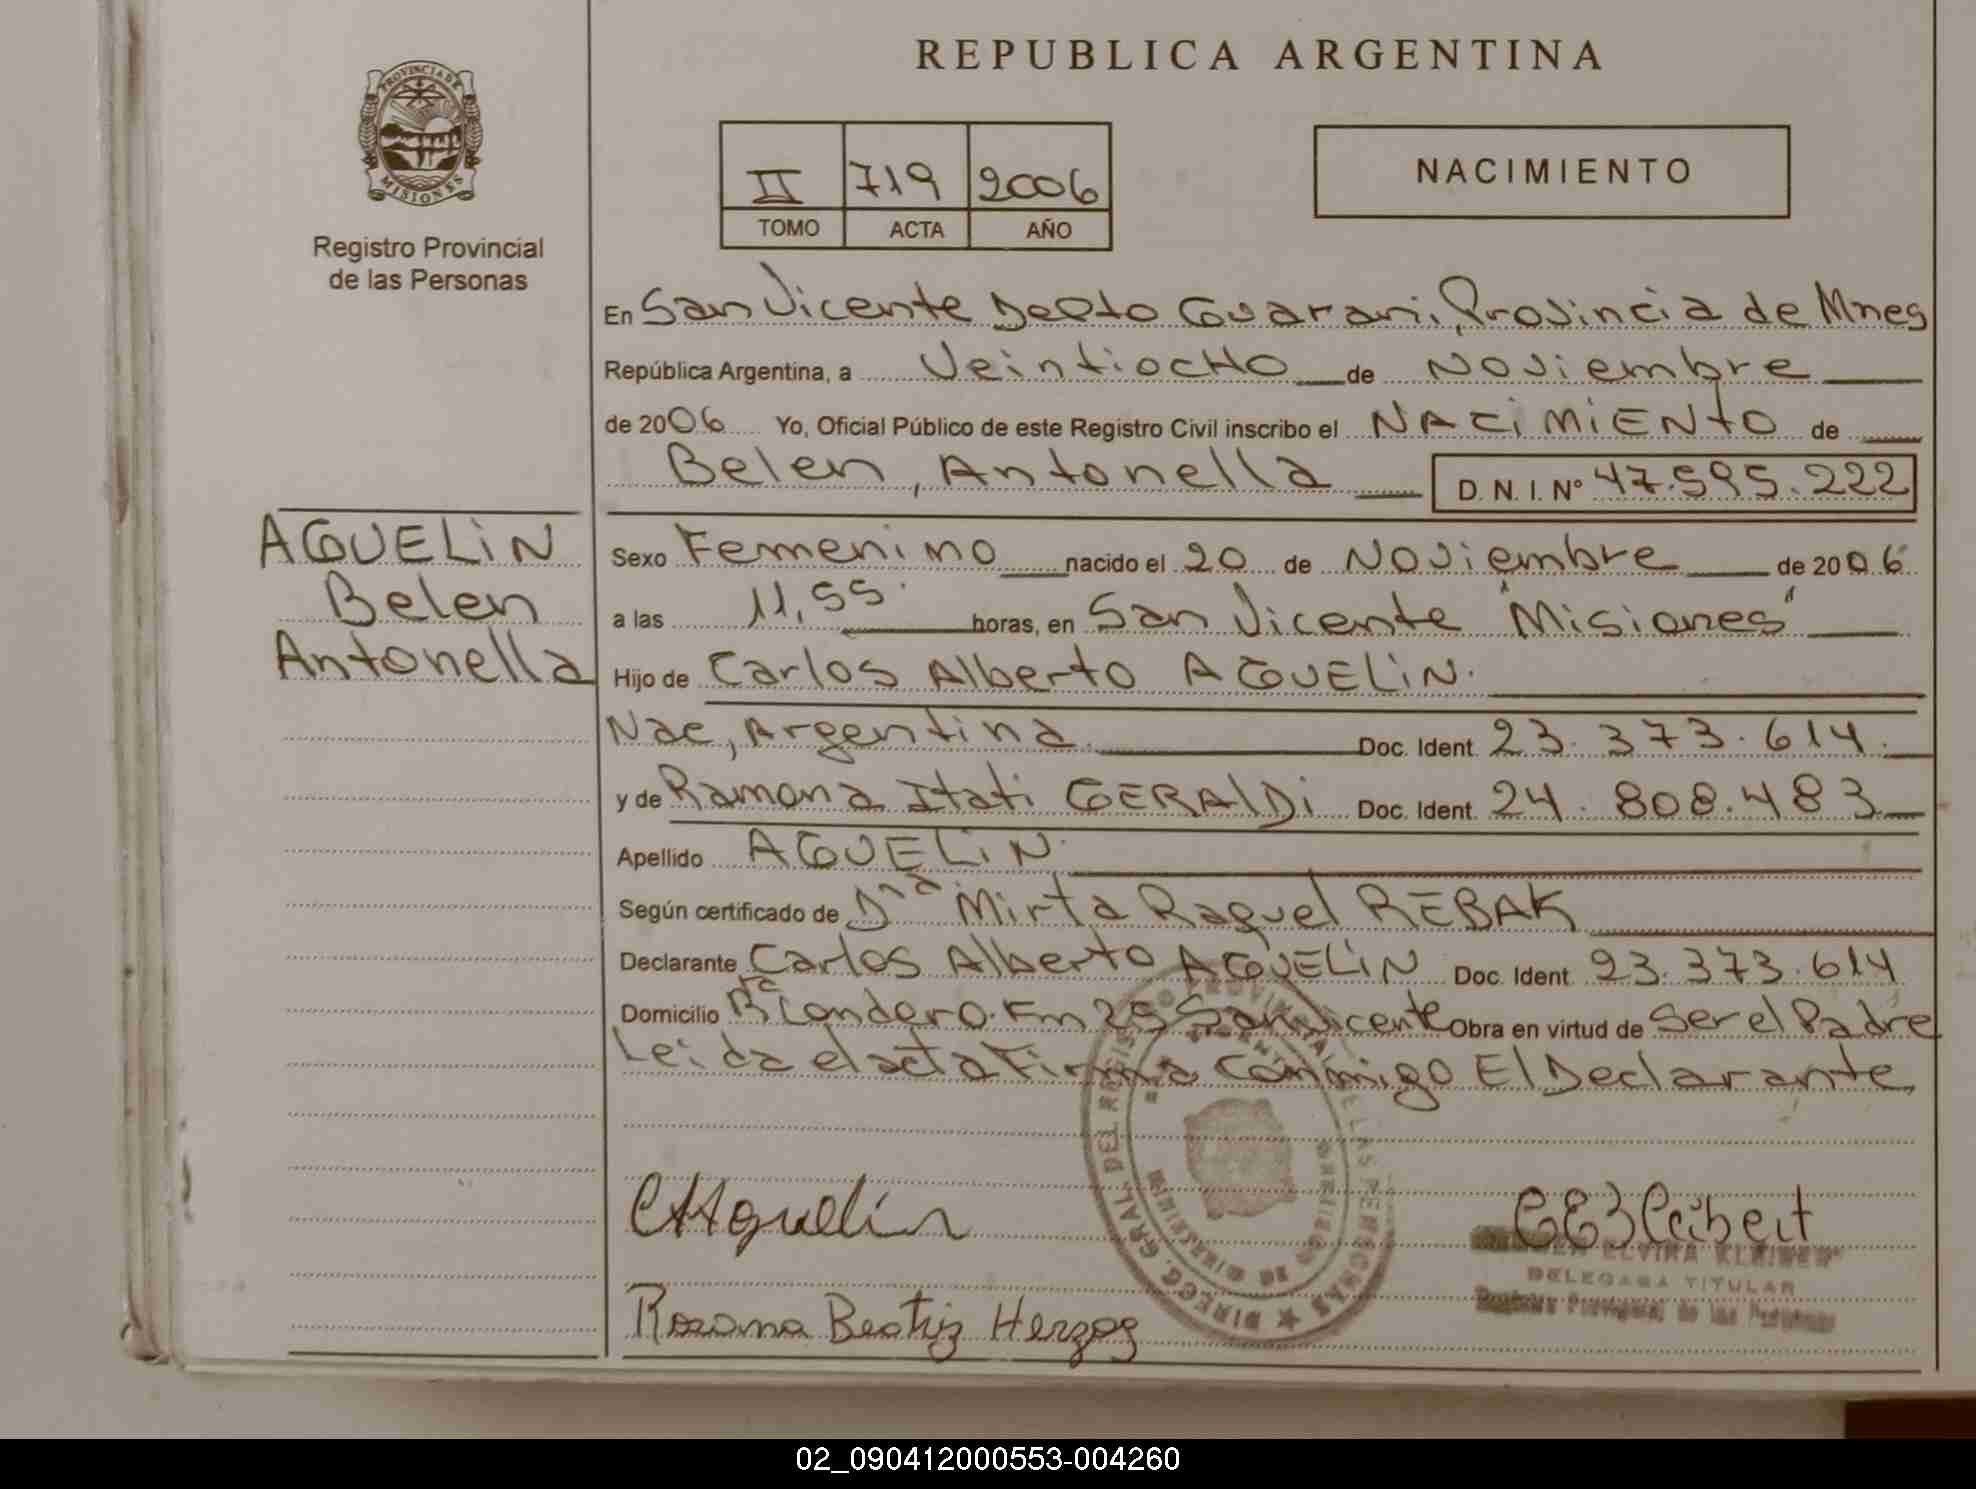 REPUBLICA ARGENTINA
PROVINCIA DE
MISIONES
Registro Provincial
de las Personas
II 719 2006
TOMO ACTA AÑO
NACIMIENTO
En San Vicente Depto Guarani, Provincia de Mnes
República Argentina, a Veintiocho de Noviembre
de 2006 Yo, Oficial Público de este Registro Civil inscribo el NACIMIENTO de
Belen, Antonella D. N. I. Nº 47.595.222
AGUELIN
Belen
Antonella
Sexo Femenino nacido el 20 de Noviembre de 2006
a las 11,55 horas, en San Vicente "Misiones"
Hijo de Carlos Alberto AGUELIN.
Nac, Argentina Doc. Ident. 23.373.614.
y de Ramona Itati GERALDI Doc. Ident. 24.808.483
Apellido AGUELIN.
Según certificado de Dña Mirta Raquel REBAK
Declarante Carlos Alberto AGUELIN Doc. Ident. 23.373.614
Domicilio Londero. Km 25 San Vicente Obra en virtud de Ser el Padre
Leida el acta Firma Conmigo El Declarante,
CAAguelin
Rosana Beatriz Herzog
DIRECC. GRAL. DEL REGISTRO PROVINCIAL DE LAS PERSONAS
ELVIRA
DELEGADA TITULAR
Registro Provincial de las Personas